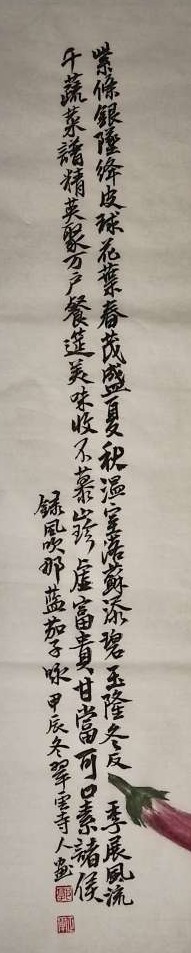 紫條銀墜絳皮球花葉春茂盛夏秋溫室落蘇添碧玉隆冬反季展風流
千蔬菜譜精英聚万戶餐筵美味收不慕山珍虛富貴甘當可口素諸侯
録風吹那蓝茄子咏甲辰冬翠雲寺人画